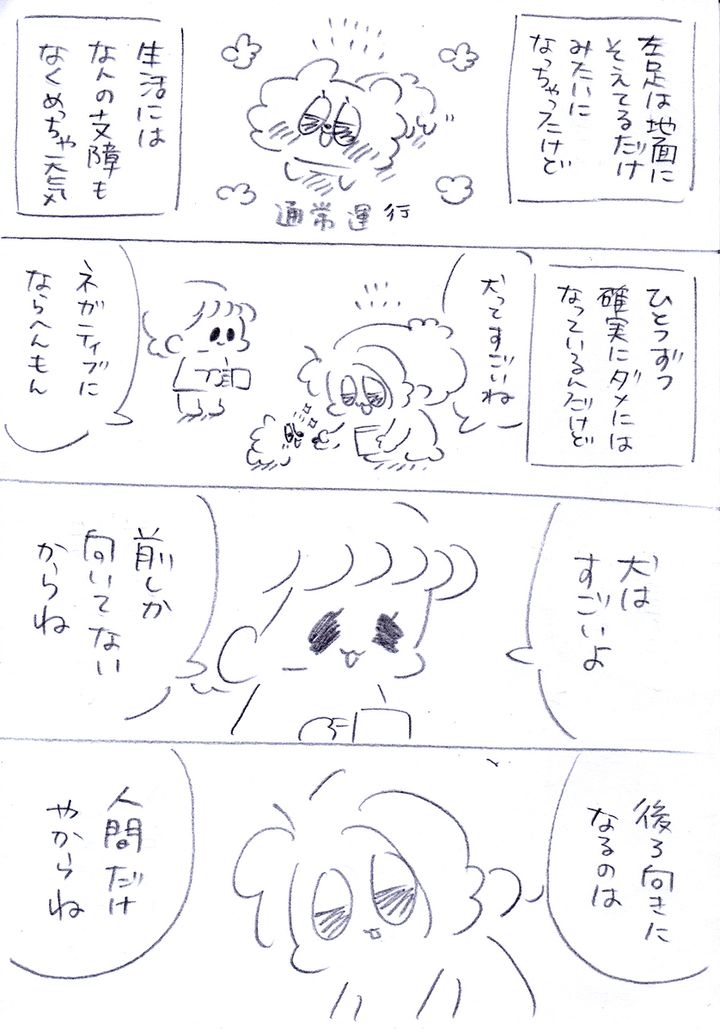 左足は地面に
そえてるだけ
みたいに
なっちゃったけど
通常運行
生活には
なんの支障も
なくめっちゃ元気
ひとつずつ
確実にダメには
なっているんだけど
犬ってすごいね
ネガティブに
ならへんもん
犬は
すごいよ
前しか
向いてない
からね
後ろ向きに
なるのは
人間だけ
やからね